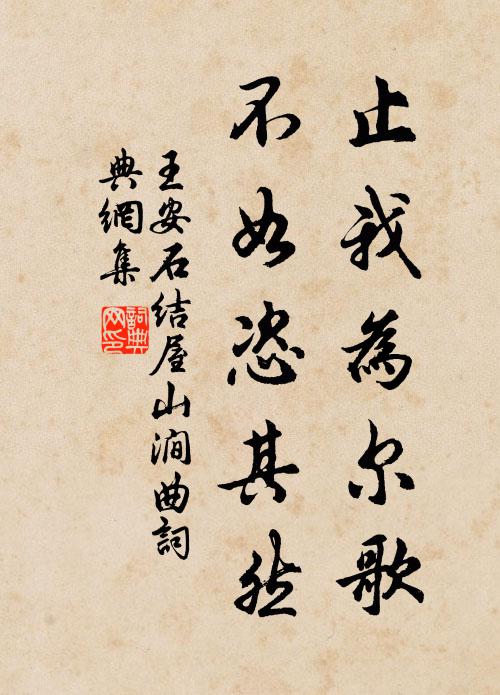 止我為尔歌
不如恣其然
王安石结屋山澗曲詞
典網集
詞典網印